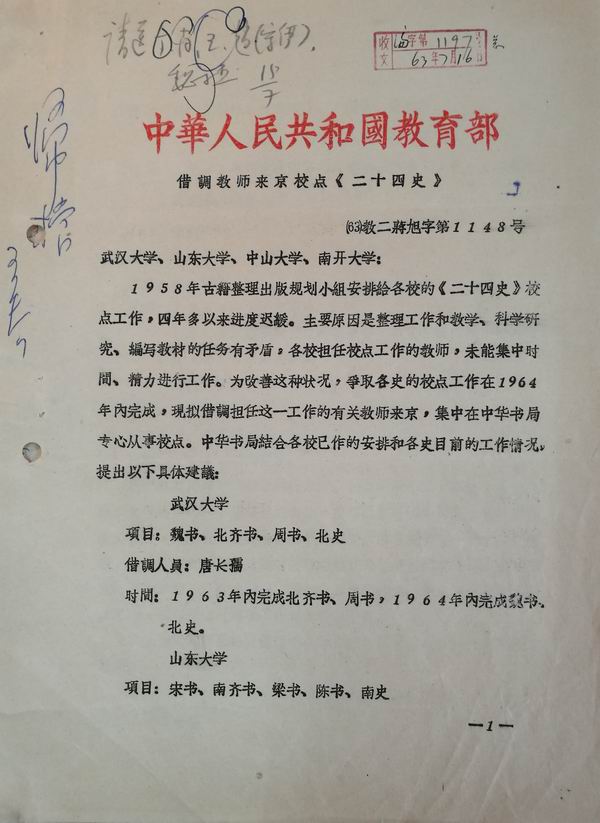 收文 字第1197号
63年7月16日
中華人民共和國教育部
借調教师来京校点《二十四史》
(63)教二蔣旭字第1148号
武汉大学、山东大学、中山大学、南开大学:
1958年古籍整理出版规划小組安排給各校的《二十四史》校
点工作，四年多以来进度迟緩。主要原因是整理工作和教学、科学研
究、編写教材的任务有矛盾，各校担任校点工作的教师，未能集中时
間、精力进行工作。为改善这种状况，爭取各史的校点工作在1964
年內完成，現拟借調担任这一工作的有关教师来京，集中在中华书局
专心从事校点。中华书局結合各校已作的安排和各史目前的工作情况，
提出以下具体建議:
武汉大学
項目: 魏书、北齐书、周书、北史
借調人員: 唐长孺
时間: 1963年內完成北齐书、周书，1964年內完成魏书、
北史。
山东大学
項目: 宋书、南齐书、梁书、陈书、南史
—1—